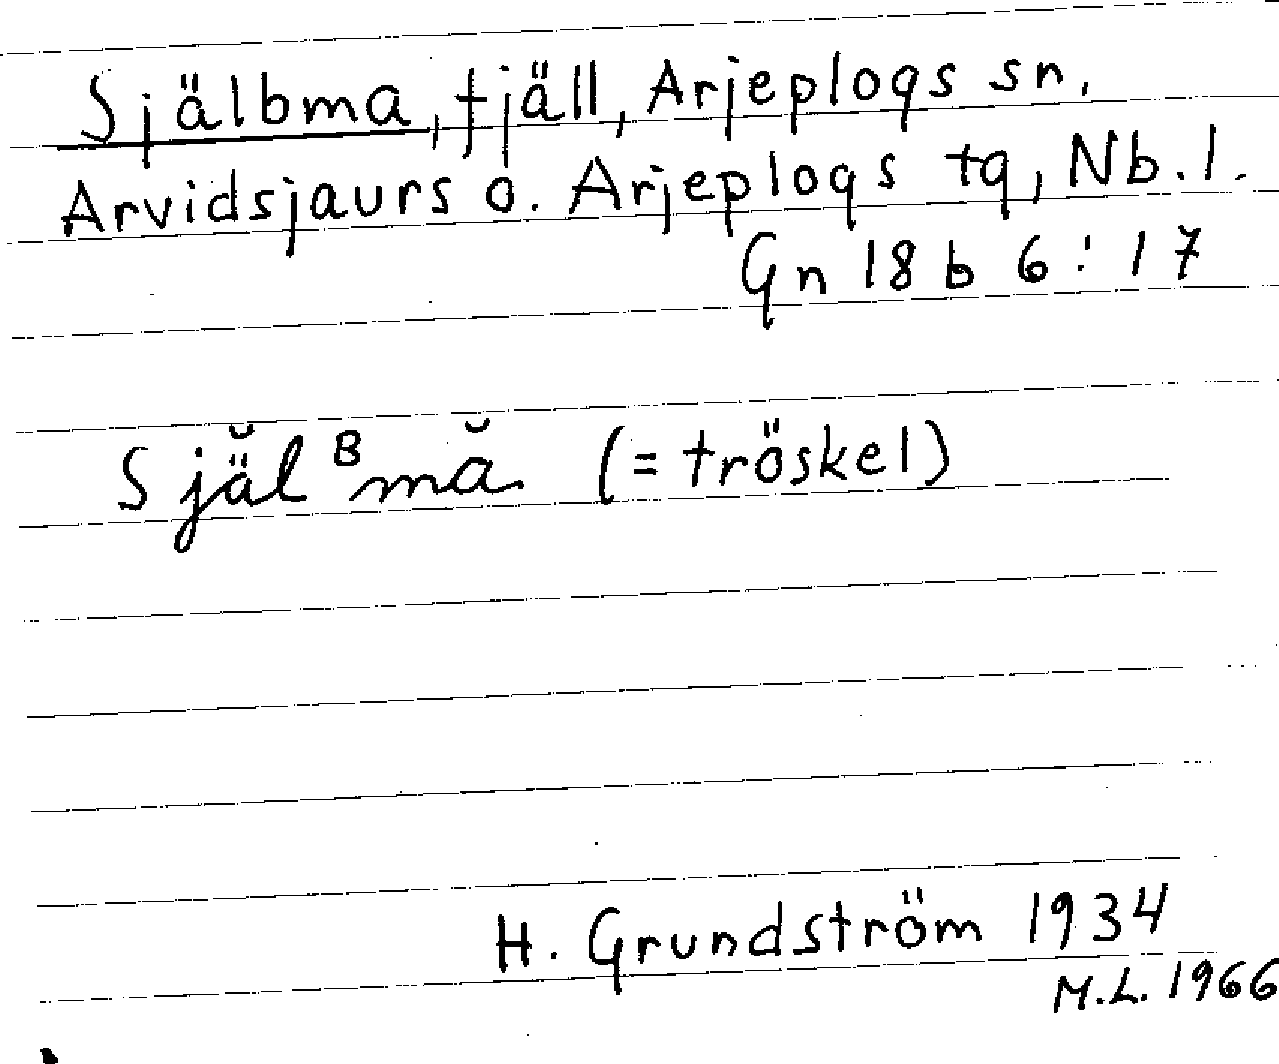 Själbma, fjäll, Arjeplogs sn,
Arvidsjaurs o. Arjeplogs tg, Nb. l.
Gn 18 b 6:17
Sjä̆lᴮmă (= tröskel)
H. Grundström 1934
M.L. 1966